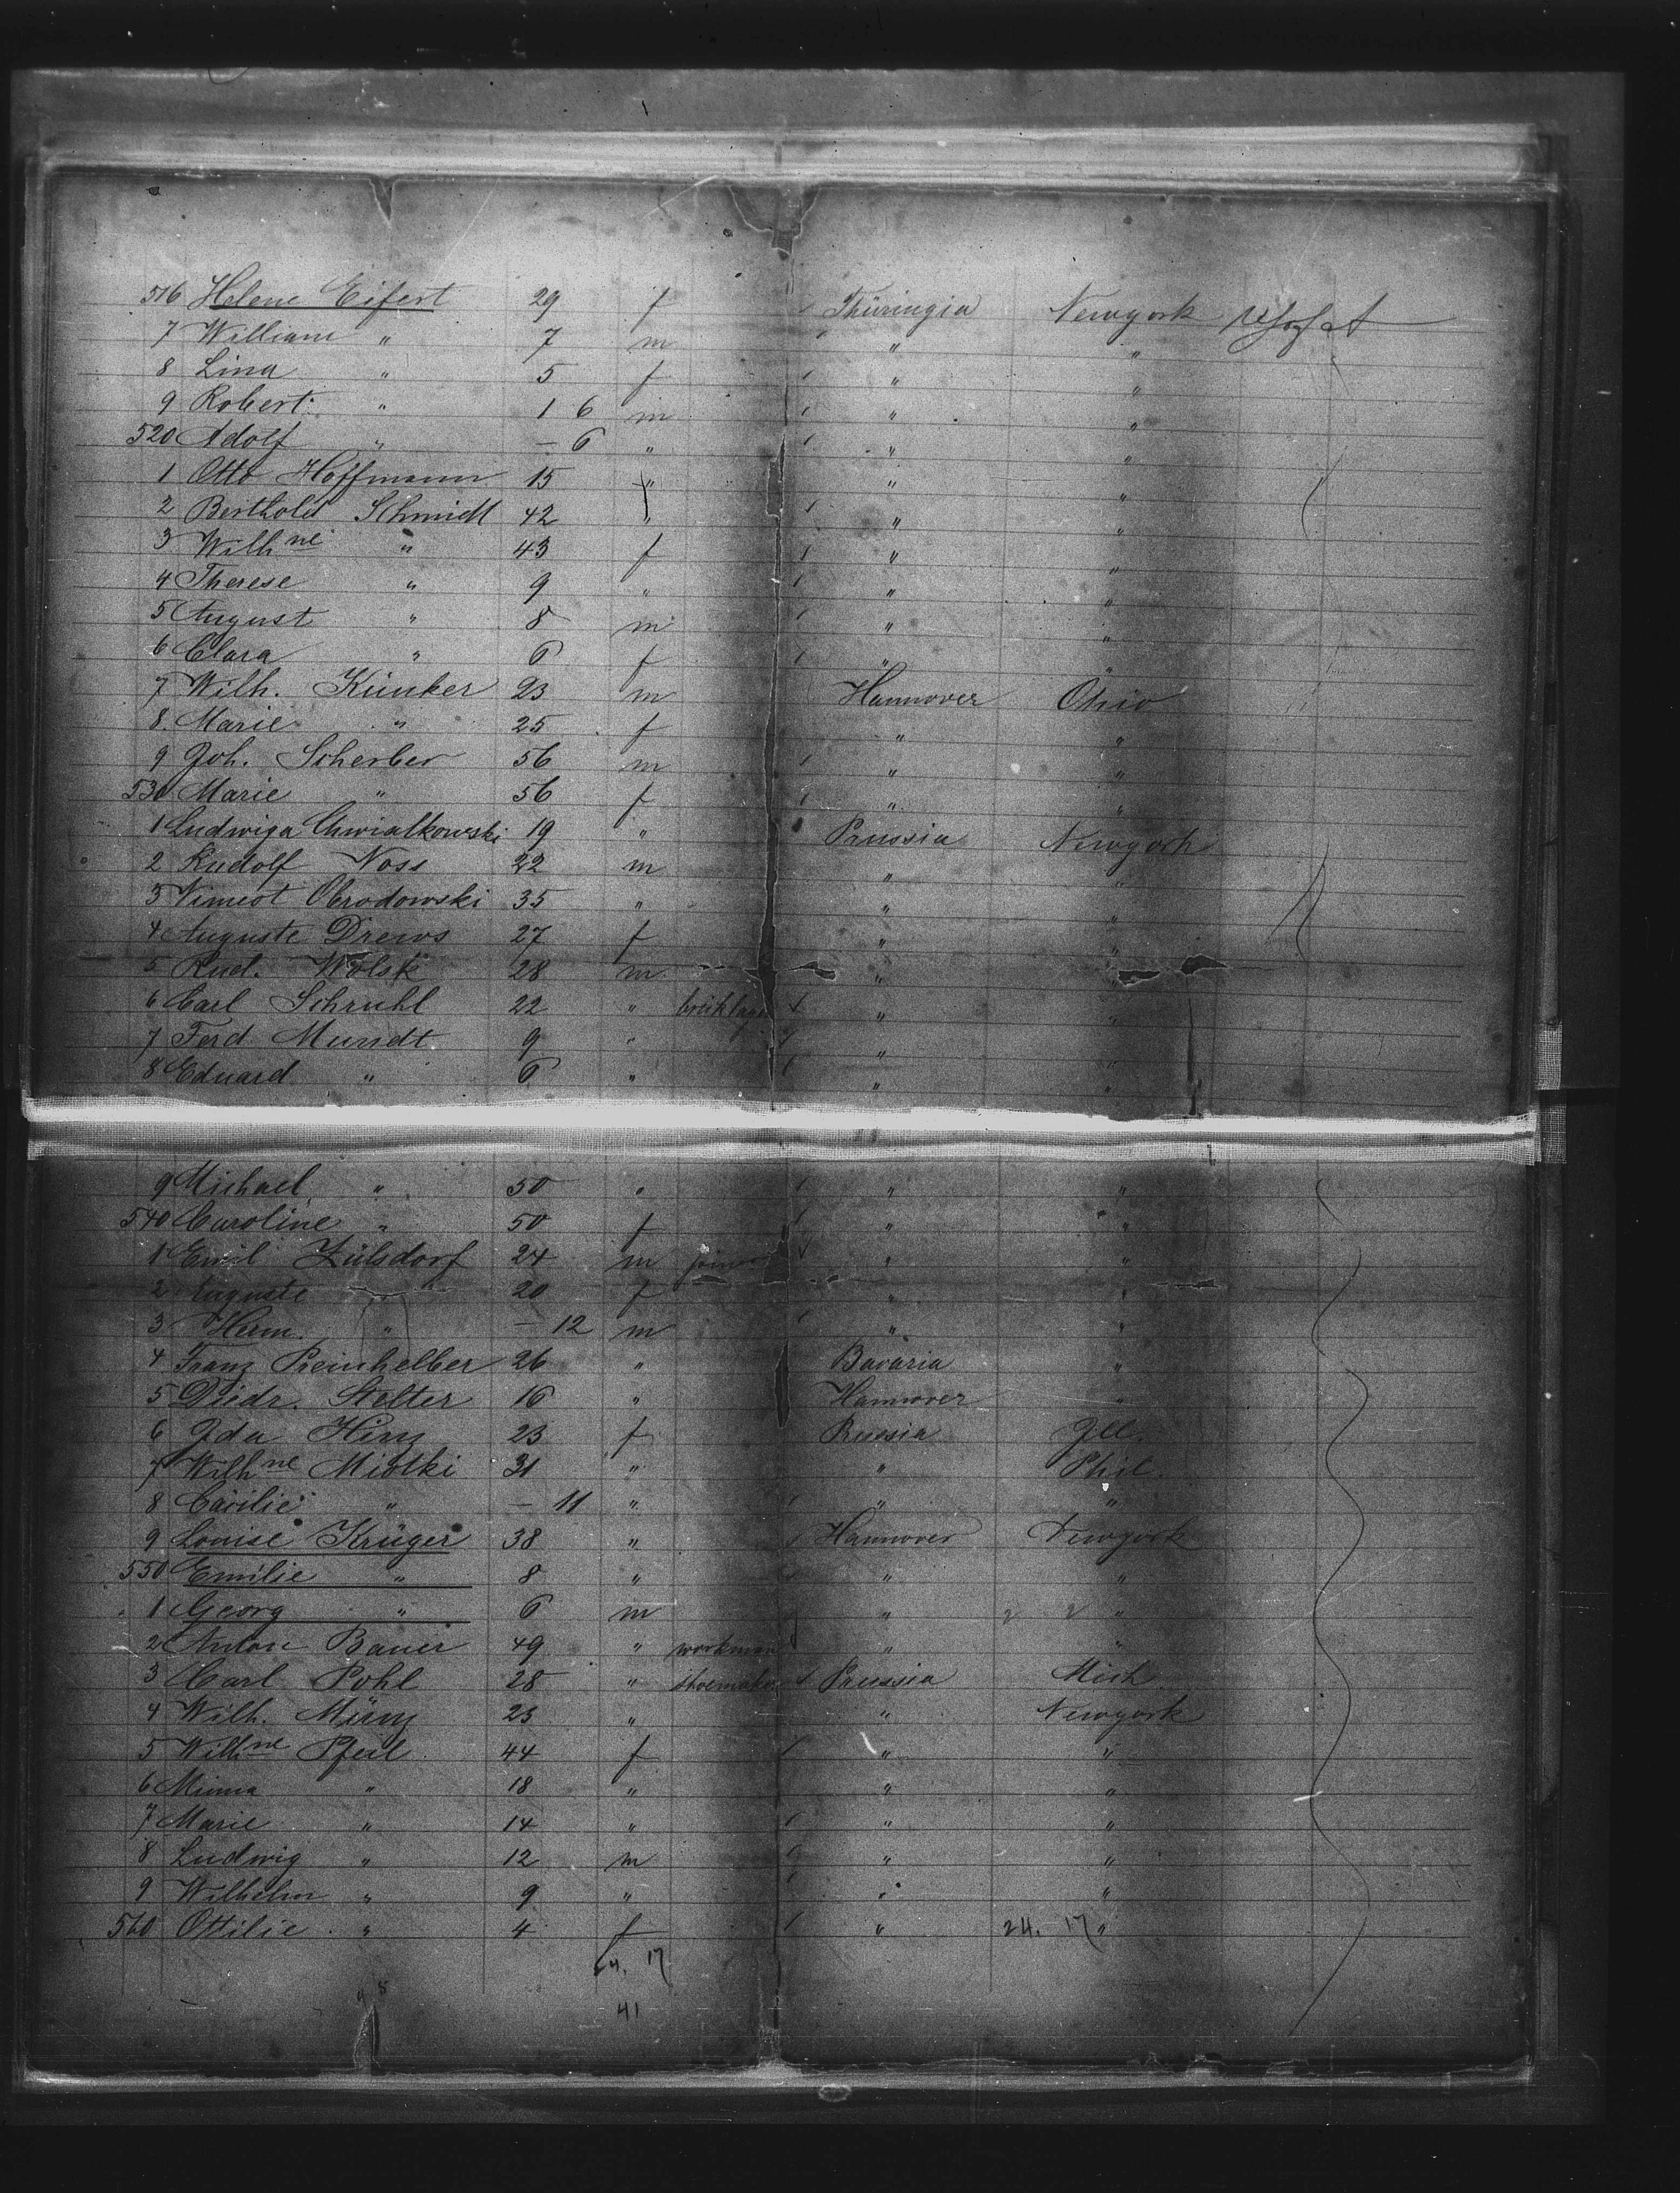 516 Helene Eifert 29 f Thüringia Newyork
7 William " 7 m " "
8 Lina " 5 f " "
9 Robert " 1 6 m " "
520 Adolf " – 6 " " "
1 Otto Hoffmann 15 " " "
2 Berthold Schmidt 42 " " "
3 Wilhne " 43 f " "
4 Therese " 9 " " "
5 August " 8 m " "
6 Clara " 6 f " "
7 Wilh. Künker 23 m Hannover Ohio
8. Marie " 25 f " "
9 Joh. Scherber 56 m " "
530 Marie " 56 f " "
1 Ludwiga Chwialkowski 19 " Prussia Newyork
2 Rudolf Voss 22 m " "
3 Obrodowski 35 " " "
4 Auguste Drews 27 f " "
5 Rud. Wolsk 28 m " "
6 Carl Schruhl 22 " " "
7 Ferd. Mundt 9 " " "
8 Eduard " 6 " " "
9 Michael " 50 " " "
540 Caroline " 50 f " "
1 Emil Zülsdorf 24 m joiner " "
2 Auguste " 20 f " "
3 Herm. " – 12 m " "
4 Franz Preinhelber 26 " Bavaria "
5 Diedr. Stelter 16 " Hannover "
6 Ida Hinz 23 f Russia Ill.
7 Wilhne Miotki 31 " " Phil.
8 Cäcilie " – 11 " " "
9 Louise Krüger 38 " Hannover Newyork
550 Emilie " 8 " " "
1 Georg " 6 m " 2 2 "
2 Anton Bauer 49 " workman " "
3 Carl Pohl 28 " shoemaker Prussia Mich
4 Wilh. Münz 23 " " Newyork
5 Wilhne Pfeil 44 f " "
6 Minna " 18 " " "
7 Marie " 14 " " "
8 Ludwig " 12 m " "
9 Wilhelm " 9 " " "
560 Ottilie " 4 f " 24. 17 "
24. 17
41